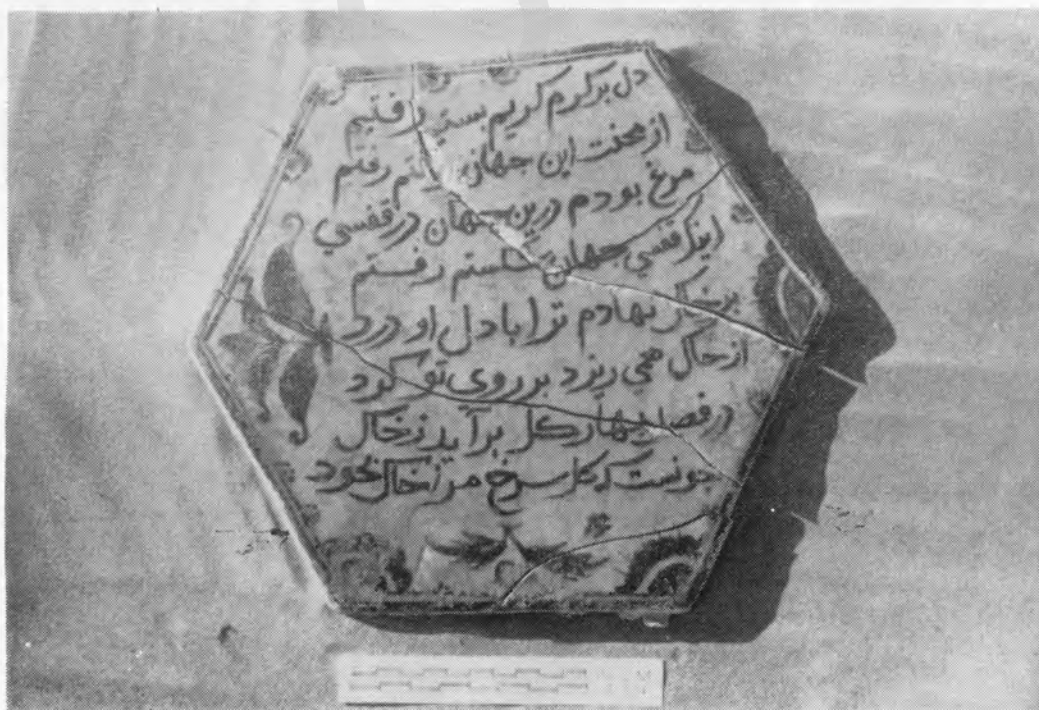 دل بر کرم کریم رفتیم
از محنت این جهان رفتم
مرغ بودم درین جهان در قفسي
اینک قفسي جهان شکستم رفتم
بر خاک نهادم ترا با دل او درد
از خاک همي ریزد بر روي تو کرد
در فصل بهار کل بر آید ز خاک
جونست که کل سرخ خاک